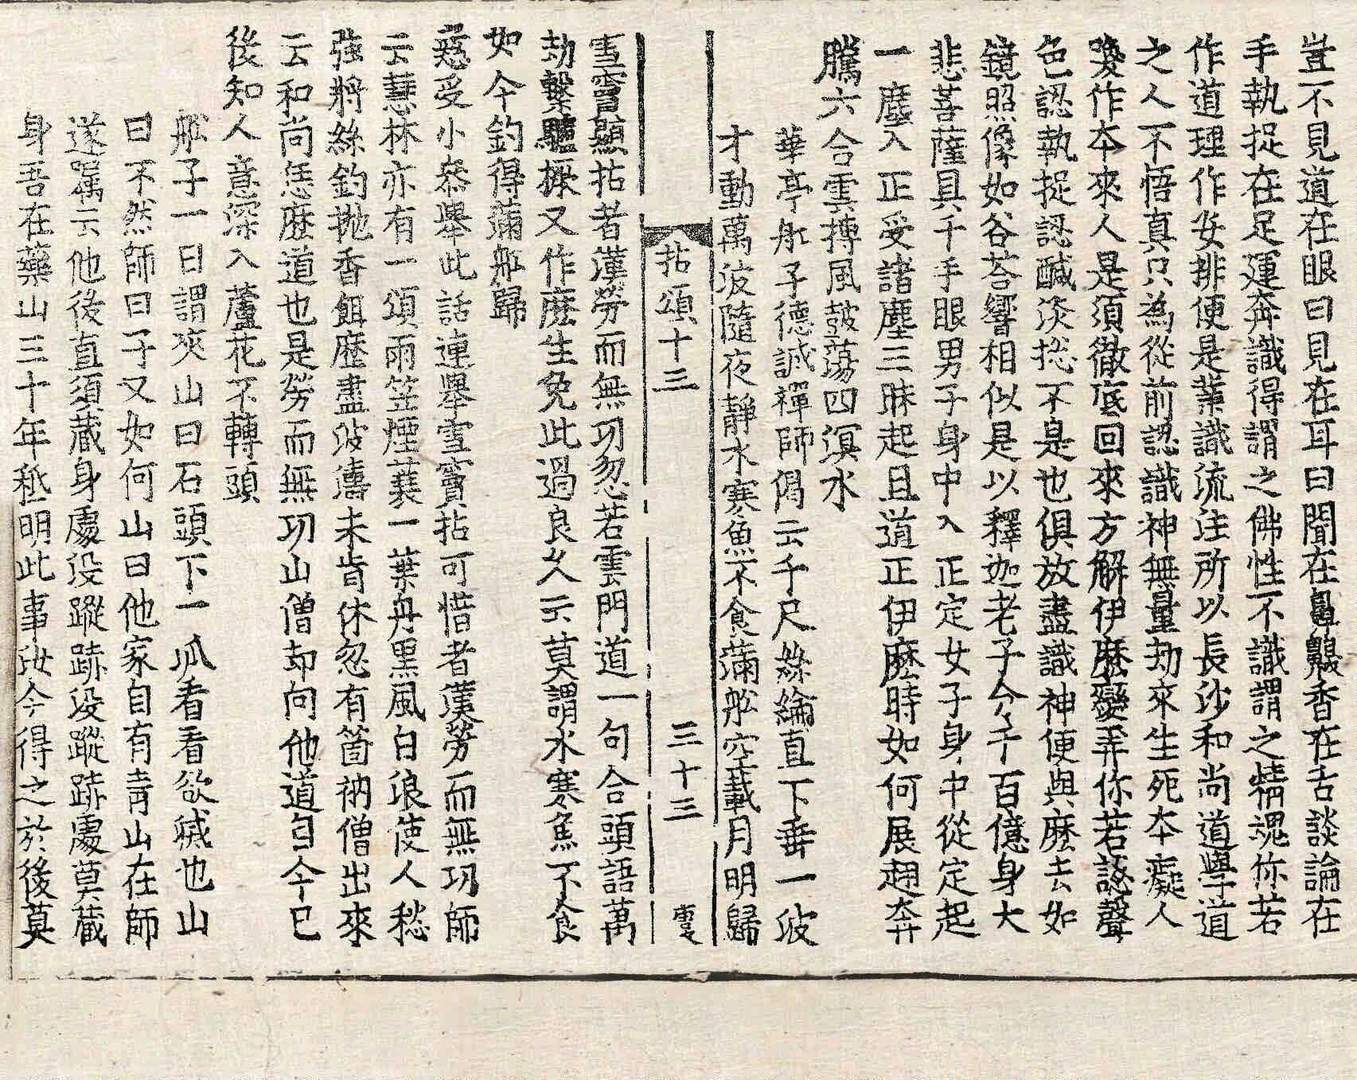 豈不見道在眼曰見在耳曰聞在鼻齅香在舌談論在
手執捉在足運奔識得謂之佛性不識謂之精魂你若
作道理作安排便是業識流注所以長沙和尚道學道
之人不悟真只為從前認識神無量劫來生死本癡人
喚作本來人是須徹底回來方解伊麽變弄你若認聲
色認執捉認鹹淡揔不是也俱放盡識神便與麽去如
鏡照像如谷荅響相似是以釋迦老子分千百億身大
悲菩薩具千手眼男子身中入正定女子身中從定起
一塵入正受諸塵三昧起且道正伊麽時如何展翅奔
騰六合雲搏風皷蕩四溟水
華亭舡子德誠禪師偈云千尺絲綸直下垂一波
才動萬波隨夜靜水寒魚不食滿舩空載月明歸
拈頌十三 三十三
雪竇顯拈者漢勞而無功忽若雲門道一句合頭語萬
劫繫驢橛又作麽生免此過良久云莫謂水寒魚不食
如今釣得滿舡歸
慈受小叅舉此話連舉雪竇拈可惜者漢勞而無功師
云慧林亦有一頌雨笠煙蓑一葉舟黑風白浪使人愁
強將絲釣拋香餌歷盡波濤未肯休忽有箇衲僧出來
云和尚恁麽道也是勞而無功山僧却向他道自今已
後知人意深入蘆花不轉頭
舩子一日謂夾山曰石頭下一派看看欲滅也山
曰不然師曰子又如何山曰他家自有青山在師
遂囑云他後直須藏身處没蹤跡没蹤跡處莫藏
身吾在藥山三十年秪明此事汝今得之於後莫